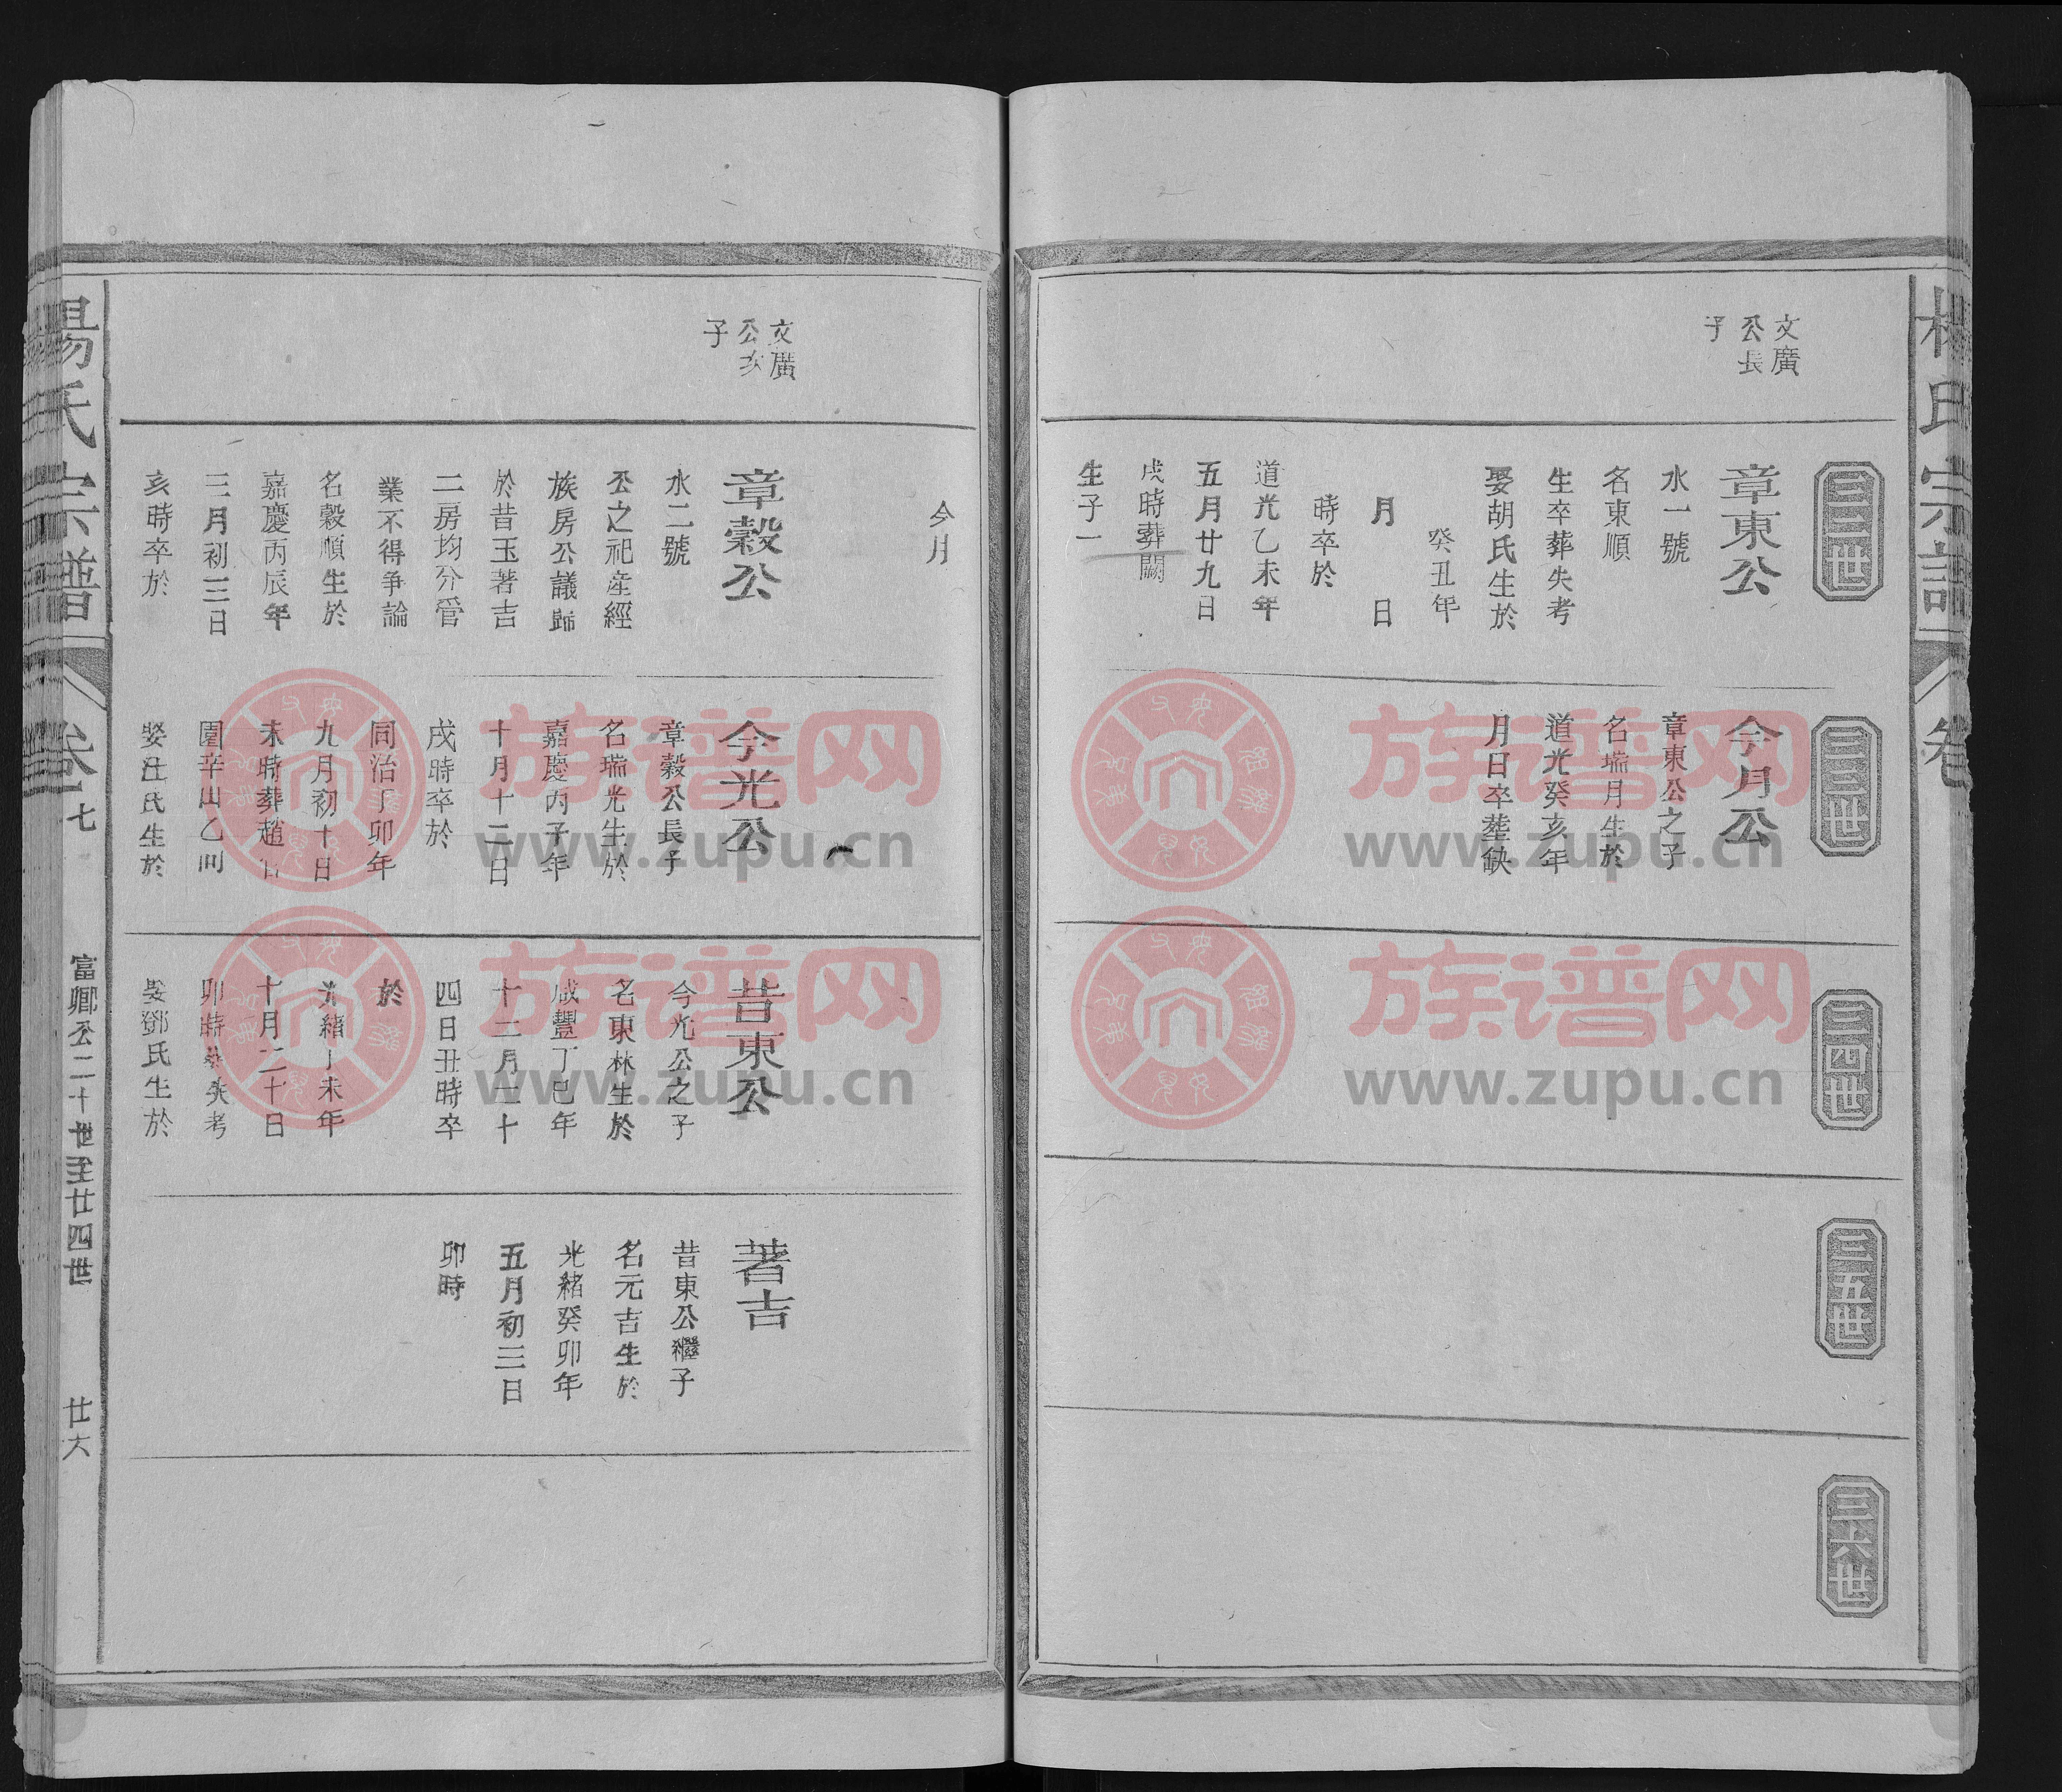 文廣
公長
子
三二世
章東公
水一號
名東順
生卒葬失考
娶胡氏生於
癸丑年
月　日
時卒於
道光乙未年
五月廿九日
戌時葬闕
生子一
今月
三三世
今月公
章東公之子
名瑞月生於
道光癸亥年
月日卒塟缺
三四世
三五世
三十六世
文廣
公次
子
章穀公
水二號
公之祀産經
族房公議歸
於昔玉著吉
二房均分管
業不得争論
名穀順生於
嘉慶丙辰年
三月初三日
亥時卒於
今光公
章穀公長子
名瑞光生於
嘉慶丙子年
十月十二日
戌時卒於
同治丁卯年
九月初十日
未時葬趙
圍辛山乙向
娶汪氏生於
昔東公
今光公之子
名東林生於
咸豐丁巳年
十二月二十
四日丑時卒
於
光緒丁未年
十月二十日
卯時葬失考
娶鄧氏生於
著吉
昔東公繼子
名元吉生於
光緒癸卯年
五月初三日
卯時
楊氏宗譜
卷七
富卿公二十世至廿四世
廿六
族谱网
www.zupu.cn
族谱网
www.zupu.cn
族谱网
www.zupu.cn
族谱网
www.zupu.cn